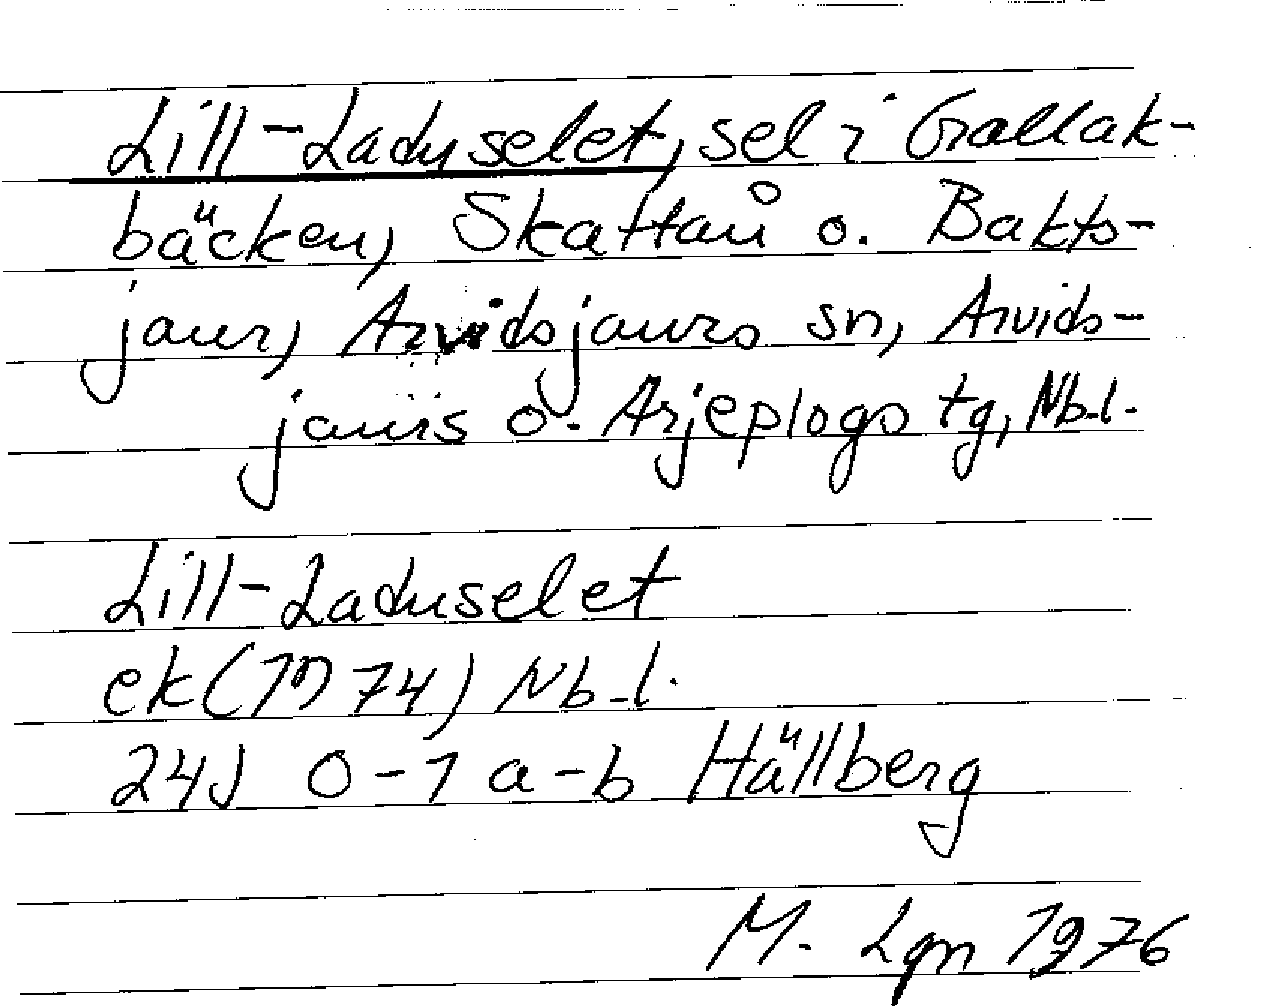 Lill-Laduselet, sel i Grallak-
bäcken, Skattån o. Bakts-
jaur, Arvidsjaurs sn, Arvids-
jaurs o. Arjeplogs tg, Nb.l.
Lill-Laduselet
ek ( 74) Nb.l.
24J 0-1 a-b Hällberg
M. Lgn 1976